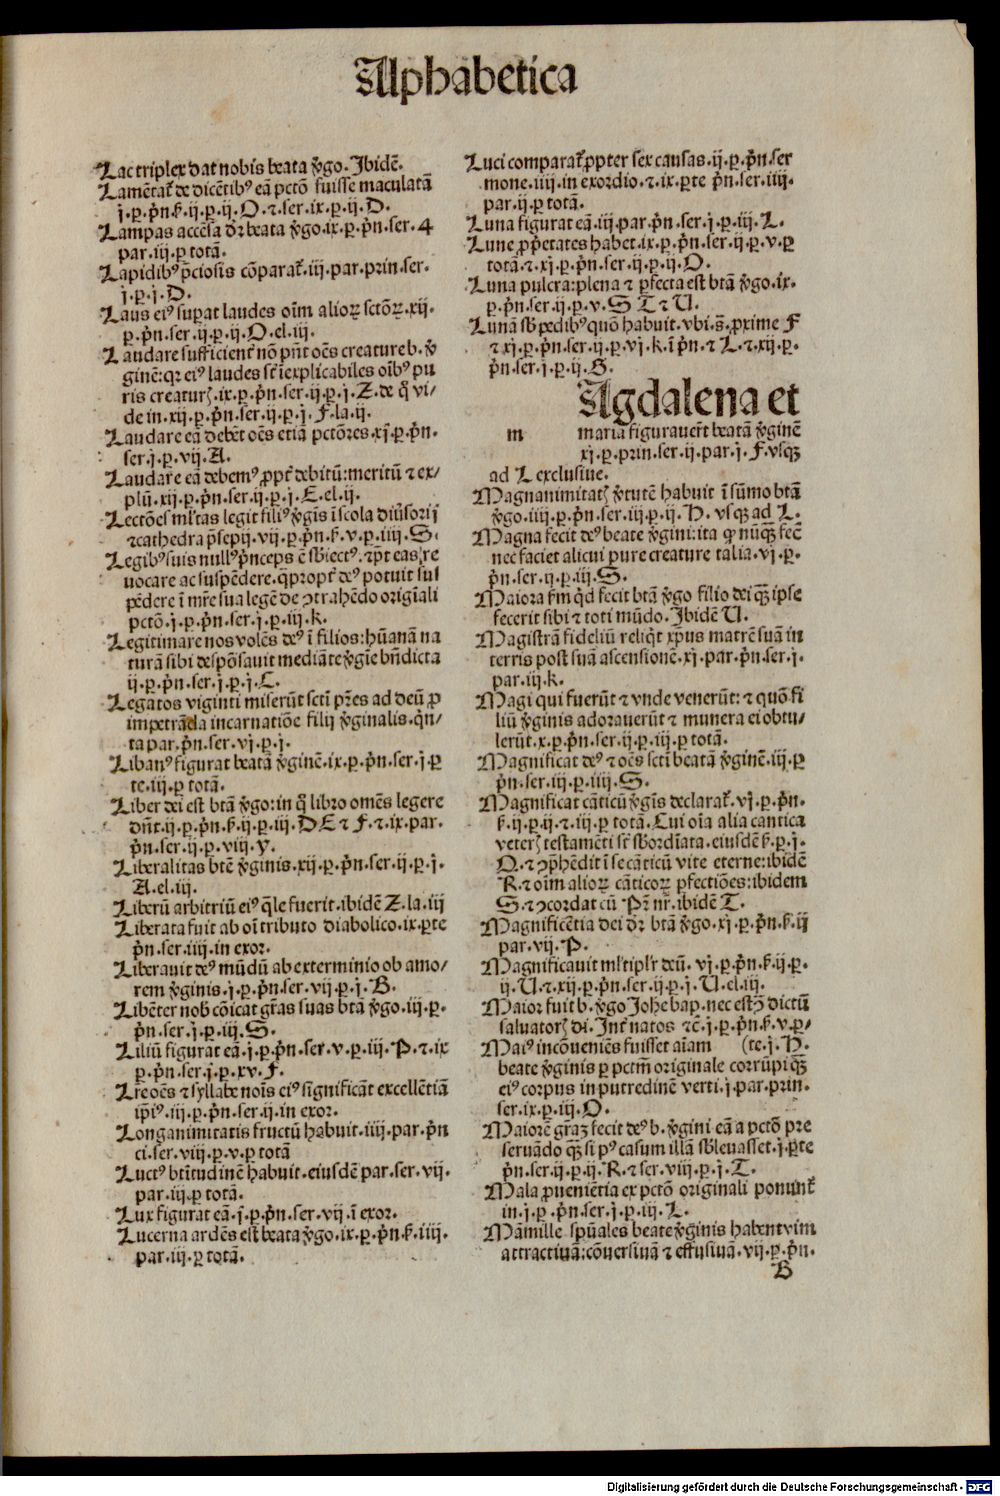 Alphabetica
Lac triplex dat nobis beata v̓go. Ibidē.
Lamētat᷒ de dicētibꝰ eā pctō fuisse maculatā
j.p.p̓n.ẜ.ij.p.ij.O.⁊.ser.ix.p.ij.D.
Lampas accēsa dr̄ beata v̓go.ix.p.p̓n.ser.4
par.iij.ꝑ totā.
Lapidibꝰ p̄ciosis cōparat᷒.iij.par.prin.ser.
j.p.j.D.
Laus eiꝰ suꝑat laudes oīm alioꝝ sctōꝝ.xij.
p.p̓n.ser.ij.p.ij.O.el.iij.
Laudare sufficient᷒ nō pn̄t oēs creature b.v̓
ginē:qꝛ eiꝰ laudes st᷒ īexplicabiles oībꝰ pu
ris creatur᷒.ix.p.p̓n.ser.ij.p.j.Z.de q̊ vi/
de in.xij.p.p̓n.ser.ij.p.j.F.la.ij.
Laudare eā debēt oēs etiā pctōres.xj.p.p̓n.
ser.j.p.vij.A.
Laudare eā debemꝰ ꝓpt᷒ debitū:meritū ⁊ ex/
plū.xij.p.p̓n.ser.ij.p.j.E.el.ij.
Lectōes ml̓tas legit filiꝰ v̓gīs ī scola diu̓sorij
⁊cathedra p̄sepij.vij.p.p̓n.ẜ.v.p.iiij.S.
Legibꝰ suis nullꝰ p̓nceps ē sb̓iectꝰ:⁊pt̄ eas re
uocare ac suspēdere.q̄propt᷒ deꝰ potuit sus
pēdere ī mr̄e sua legē de ꝯtrahēdo origīali
pctō.j.p.p̓n.ser.j.p.iij.k.
Legitimare nos volēs deꝰ ī filios:hūanā na
turā sibi despōsauit mediāte v̓gīe bn̄dicta
ij.p.p̓n.ser.j.p.j.C.
Legatos viginti miserūt scti pr̄es ad deū ꝓ
impetrāda incarnatiōe filij v̓ginalis.q̓n/
ta par.p̓n.ser.vj.p.j.
Libanꝰ figurat beatā v̓ginē.ix.p.p̓n.ser.j.ꝑ
te.iij.ꝑ totā.
Liber dei est btā v̓go:in q̊ libro omēs legere
dn̄t.ij.p.p̓n.ẜ.ij.p.iij.D E ⁊ F.⁊.ix.par.
p̓n.ser.ij.p.viij.y.
Liberalitas btē v̓ginis.xij.p.p̓n.ser.ij.p.j.
A.el.iij.
Liberū arbitriū eiꝰ q̄le fuerit.ibidē Z.la.iij
Liberata fuit ab oī tributo diabolico.ix.ꝑte
p̓n.ser.iiij.in exor.
Liberauit deꝰ mūdū ab exterminio ob amo/
rem v̓ginis.j.p.p̓n.ser.vij.p.j.B.
Libēter nob᷒ cōicat gr̄as suas btā v̓go.iij.p.
p̓n.ser.j.p.iij.S.
Liliū figurat eā.j.p.p̓n.ser.v.p.iij.P.⁊.ix
p.p̓n.ser.j.p.xv.F.
Lr̄e oēs ⁊ syllabe noīs eiꝰ significāt excellētiā
ip̄iꝰ.iij.p.p̓n.ser.ij.in exor.
Longanimitatis fructū habuit.iiij.par.p̓n
ci.ser.viij.p.v.ꝑ totā
Luctꝰ btītudinē habuit.eiusdē par.ser.vij.
par.iij.ꝑ totā.
Lux figurat eā.j.p.p̓n.ser.vij.ī exor.
Lucerna ardēs est beata v̓go.ix.p.p̓n.ẜ.iiij.
par.iij.ꝑ totā.
Luci comparat᷒ ꝓpter sex causas.ij.p.p̓n.ser
mone.iiij.in exordio.⁊.ix.ꝑte p̓n.ser.iiij.
par.ij.ꝑ totā.
Luna figurat eā.iij.par.p̓n.ser.j.p.iij.L.
Lune ꝓprietates habet.ix.p.p̓n.ser.ij.p.v.ꝑ
totā.⁊.xj.p.p̓n.ser.ij.p.ij.O.
Luna pulcra:plena ⁊ ꝑfecta est btā v̓go.ix.
p.p̓n.ser.ij.p.v.S T ⁊ U.
Lunā sb̓ pedibꝰ quō habuit.vbi.s̄.ꝓxime F
⁊ xj.p.p̓n.ser.ij.p.vj.k.ī p̓n.⁊ L.⁊.xij.p.
p̓n.ser.j.p.ij.S.
m Agdalena et
maria figurauer̄t beatā v̓ginē
xj.p.prin.ser.ij.par.j.F.vsqꝫ
ad L exclusiue.
Magnanimitat᷒ v̓tutē habuit ī sūmo btā
v̓go.iiij.p.p̓n.ser.iij.p.ij.H.vsqꝫ ad L.
Magna fecit deꝰ beate v̓gini:ita ꝙ nūqꝫ fec̄
nec faciet alicui pure creature talia.vj.p.
p̓n.ser.ij.p.iij.S.
Maiora fm̄ qd̓ fecit btā v̓go filio dei qꝫ ipse
fecerit sibi ⁊ toti mūdo.Ibidē U.
Magistrā fideliū reliq̓t xp̄us matrē suā in
terris post suā ascensionē.xj.par.p̓n.ser.j.
par.iij.k.
Magi qui fuerūt ⁊ vnde venerūt:⁊ quō fi
liū v̓ginis adorauerūt ⁊ munera ei obtu/
lerūt.x.p.p̓n.ser.ij.p.iij.ꝑ totā.
Magnificat deꝰ ⁊ oēs scti beatā v̓ginē.iij.p
p̓n.ser.iij.p.iiij.S.
Magnificat cāticū v̓gīs declarat᷒.vj.p.p̓n.
ẜ.ij.p.ij.⁊.iij.ꝑ totā.Cui oīa alia cantica
veter᷒ testamēti st᷒ sb̓ordīata.eiusdē ẜ.p.j.
Q.⁊ ꝯp̓hēdit ī se cāticū vite eterne:ibidē
R.⁊ oīm alioꝝ cāticoꝝ ꝑfectiōes:ibidem
S.⁊ ꝯcordat cū Pr̄ nr̄.ibidē T.
Magnificētia dei dr̄ btā v̓go.xj.p.p̓n.ẜ.ij
par.vij.P.
Magnificauit ml̓tipl̓r deū.vj.p.p̓n.ẜ.ij.p.
ij.U.⁊.xij.p.p̓n.ser.ij.p.j.U.el.iij.
Maior fuit b.v̓go Johe bap.nec est ꝯ̄ dictū
saluator᷒ di.Int᷒ natos ⁊c̄.j.p.p̓n.ẜ.v.p/
Maiꝰ incōueniēs fuisset aīam (te.j.H.
beate v̓ginis ꝑ pctm̄ originale corrūpi qꝫ
eiꝰ corpus in putredinē verti.j.par.prin.
ser.ix.p.iij.O.
Maiorē gr̄aꝫ fecit deꝰ b.v̓gini eā a pctō pre
seruādo qꝫ si pꝰ casum illā sb̓leuasset.j.ꝑte
p̓n.ser.ij.p.ij.R.⁊ ser.viij.p.j.T.
Mala ꝓueniētia ex pctō originali ponunt᷒
in.j.p.p̓n.ser.j.p.iij.L.
Māmille spūales beate v̓ginis habent vim
attractiuā:cōuersiuā ⁊ effusiuā.vij.p.p̓n.
B
Digitalisierung gefördert durch die Deutsche Forschungsgemeinschaft - DFG